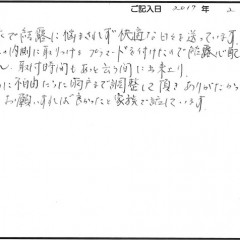 ご記入日 2017 年 2
で結露に悩まされず快適な日々を送っています。
の内側に取りつけるプラマードを付けたので結露も心配
ん、取付時間もあっと云う間に出来上り
に不自由だった雨戸まで調整して頂きありがたから
お願いすれば良かったと家族で話しています。